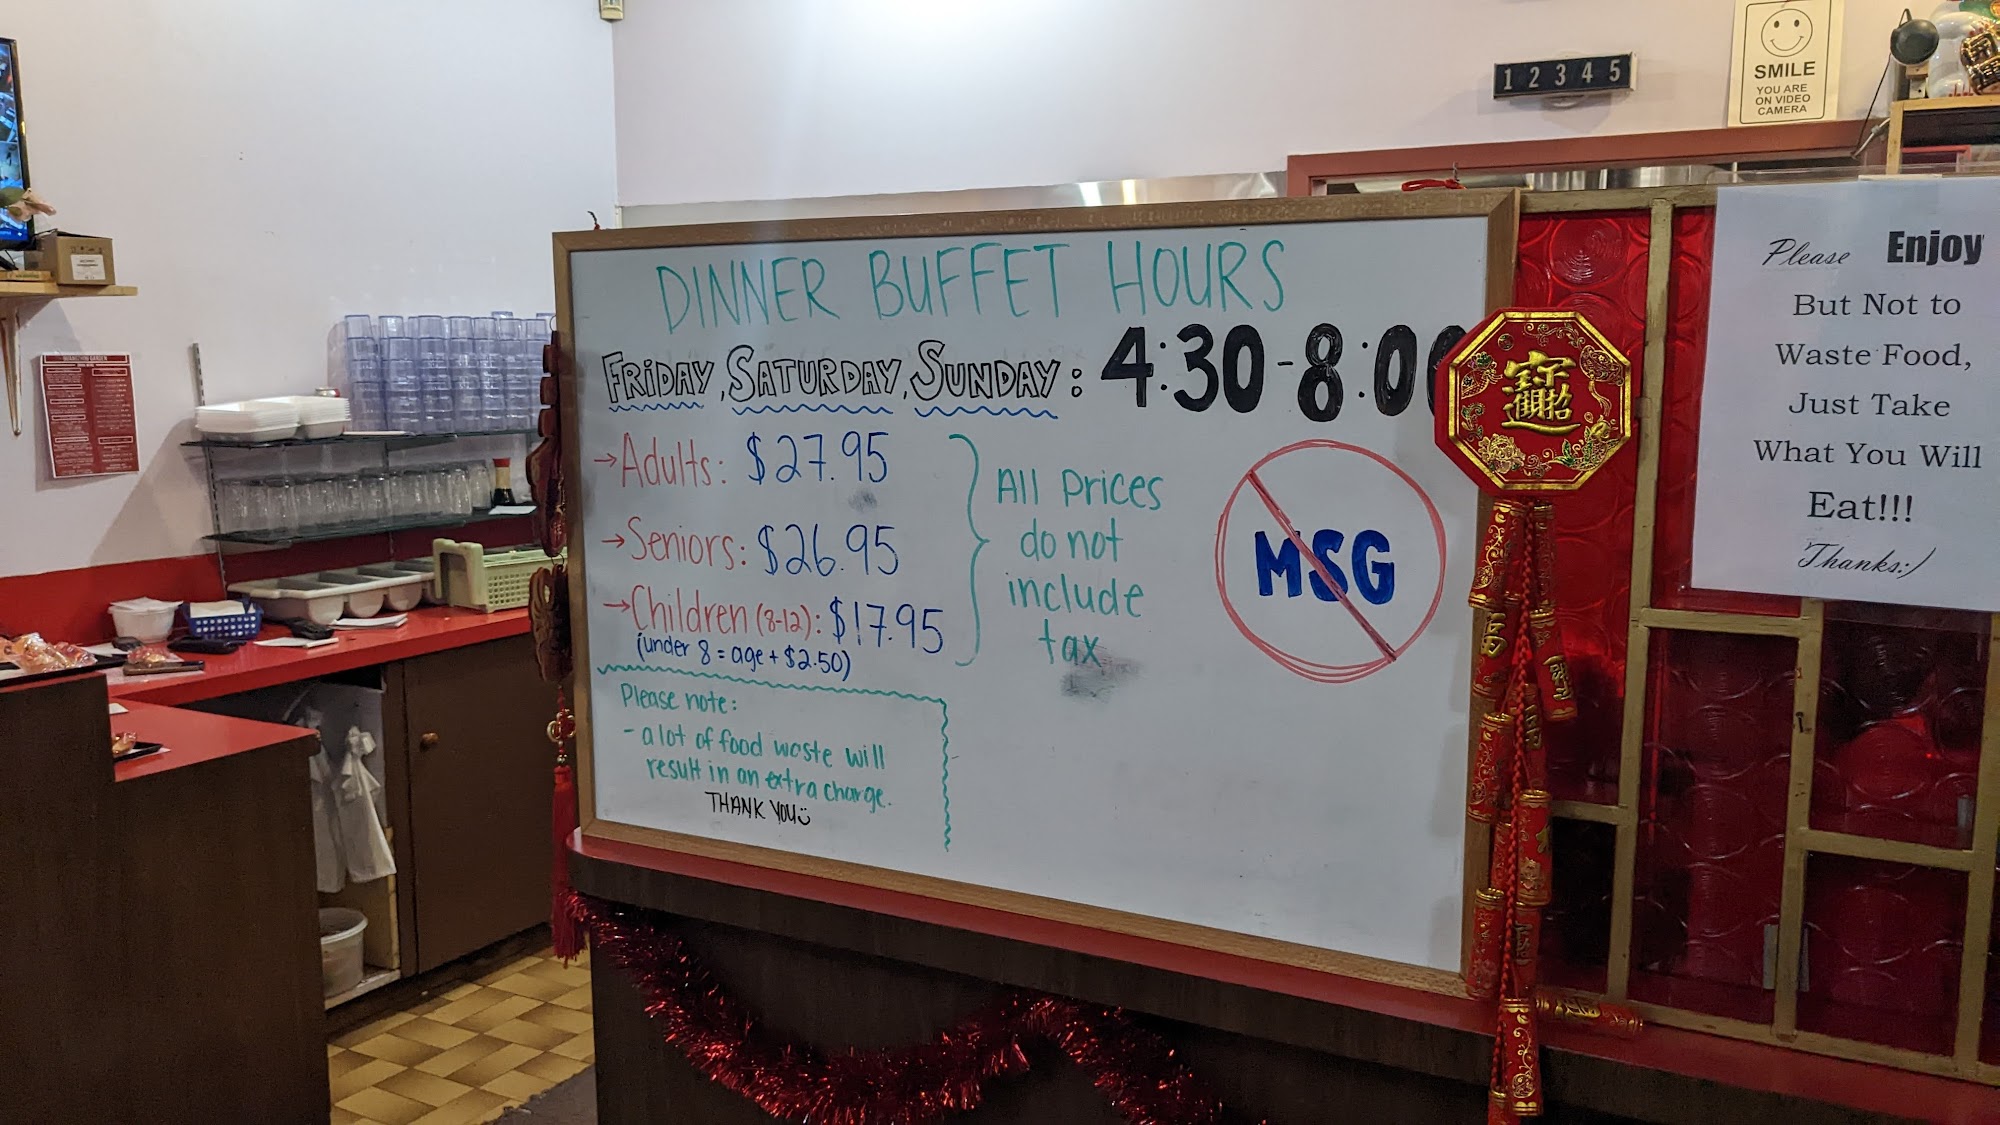 DINNER BUFFET HOURS
FRIDAY, SATURDAY, SUNDAY: 4:30-8:00
→Adults: $27.95
→Seniors: $26.95
→Children (8-12): $17.95
(under 8 = age + $2.50)
All Prices
do not
include
tax
MSG
Please note:
- a lot of food waste will
result in an extra charge.
THANK YOU
1 2 3 4 5
SMILE
YOU ARE
ON VIDEO
CAMERA
Please Enjoy
But Not to
Waste Food,
Just Take
What You Will
Eat!!!
Thanks:)